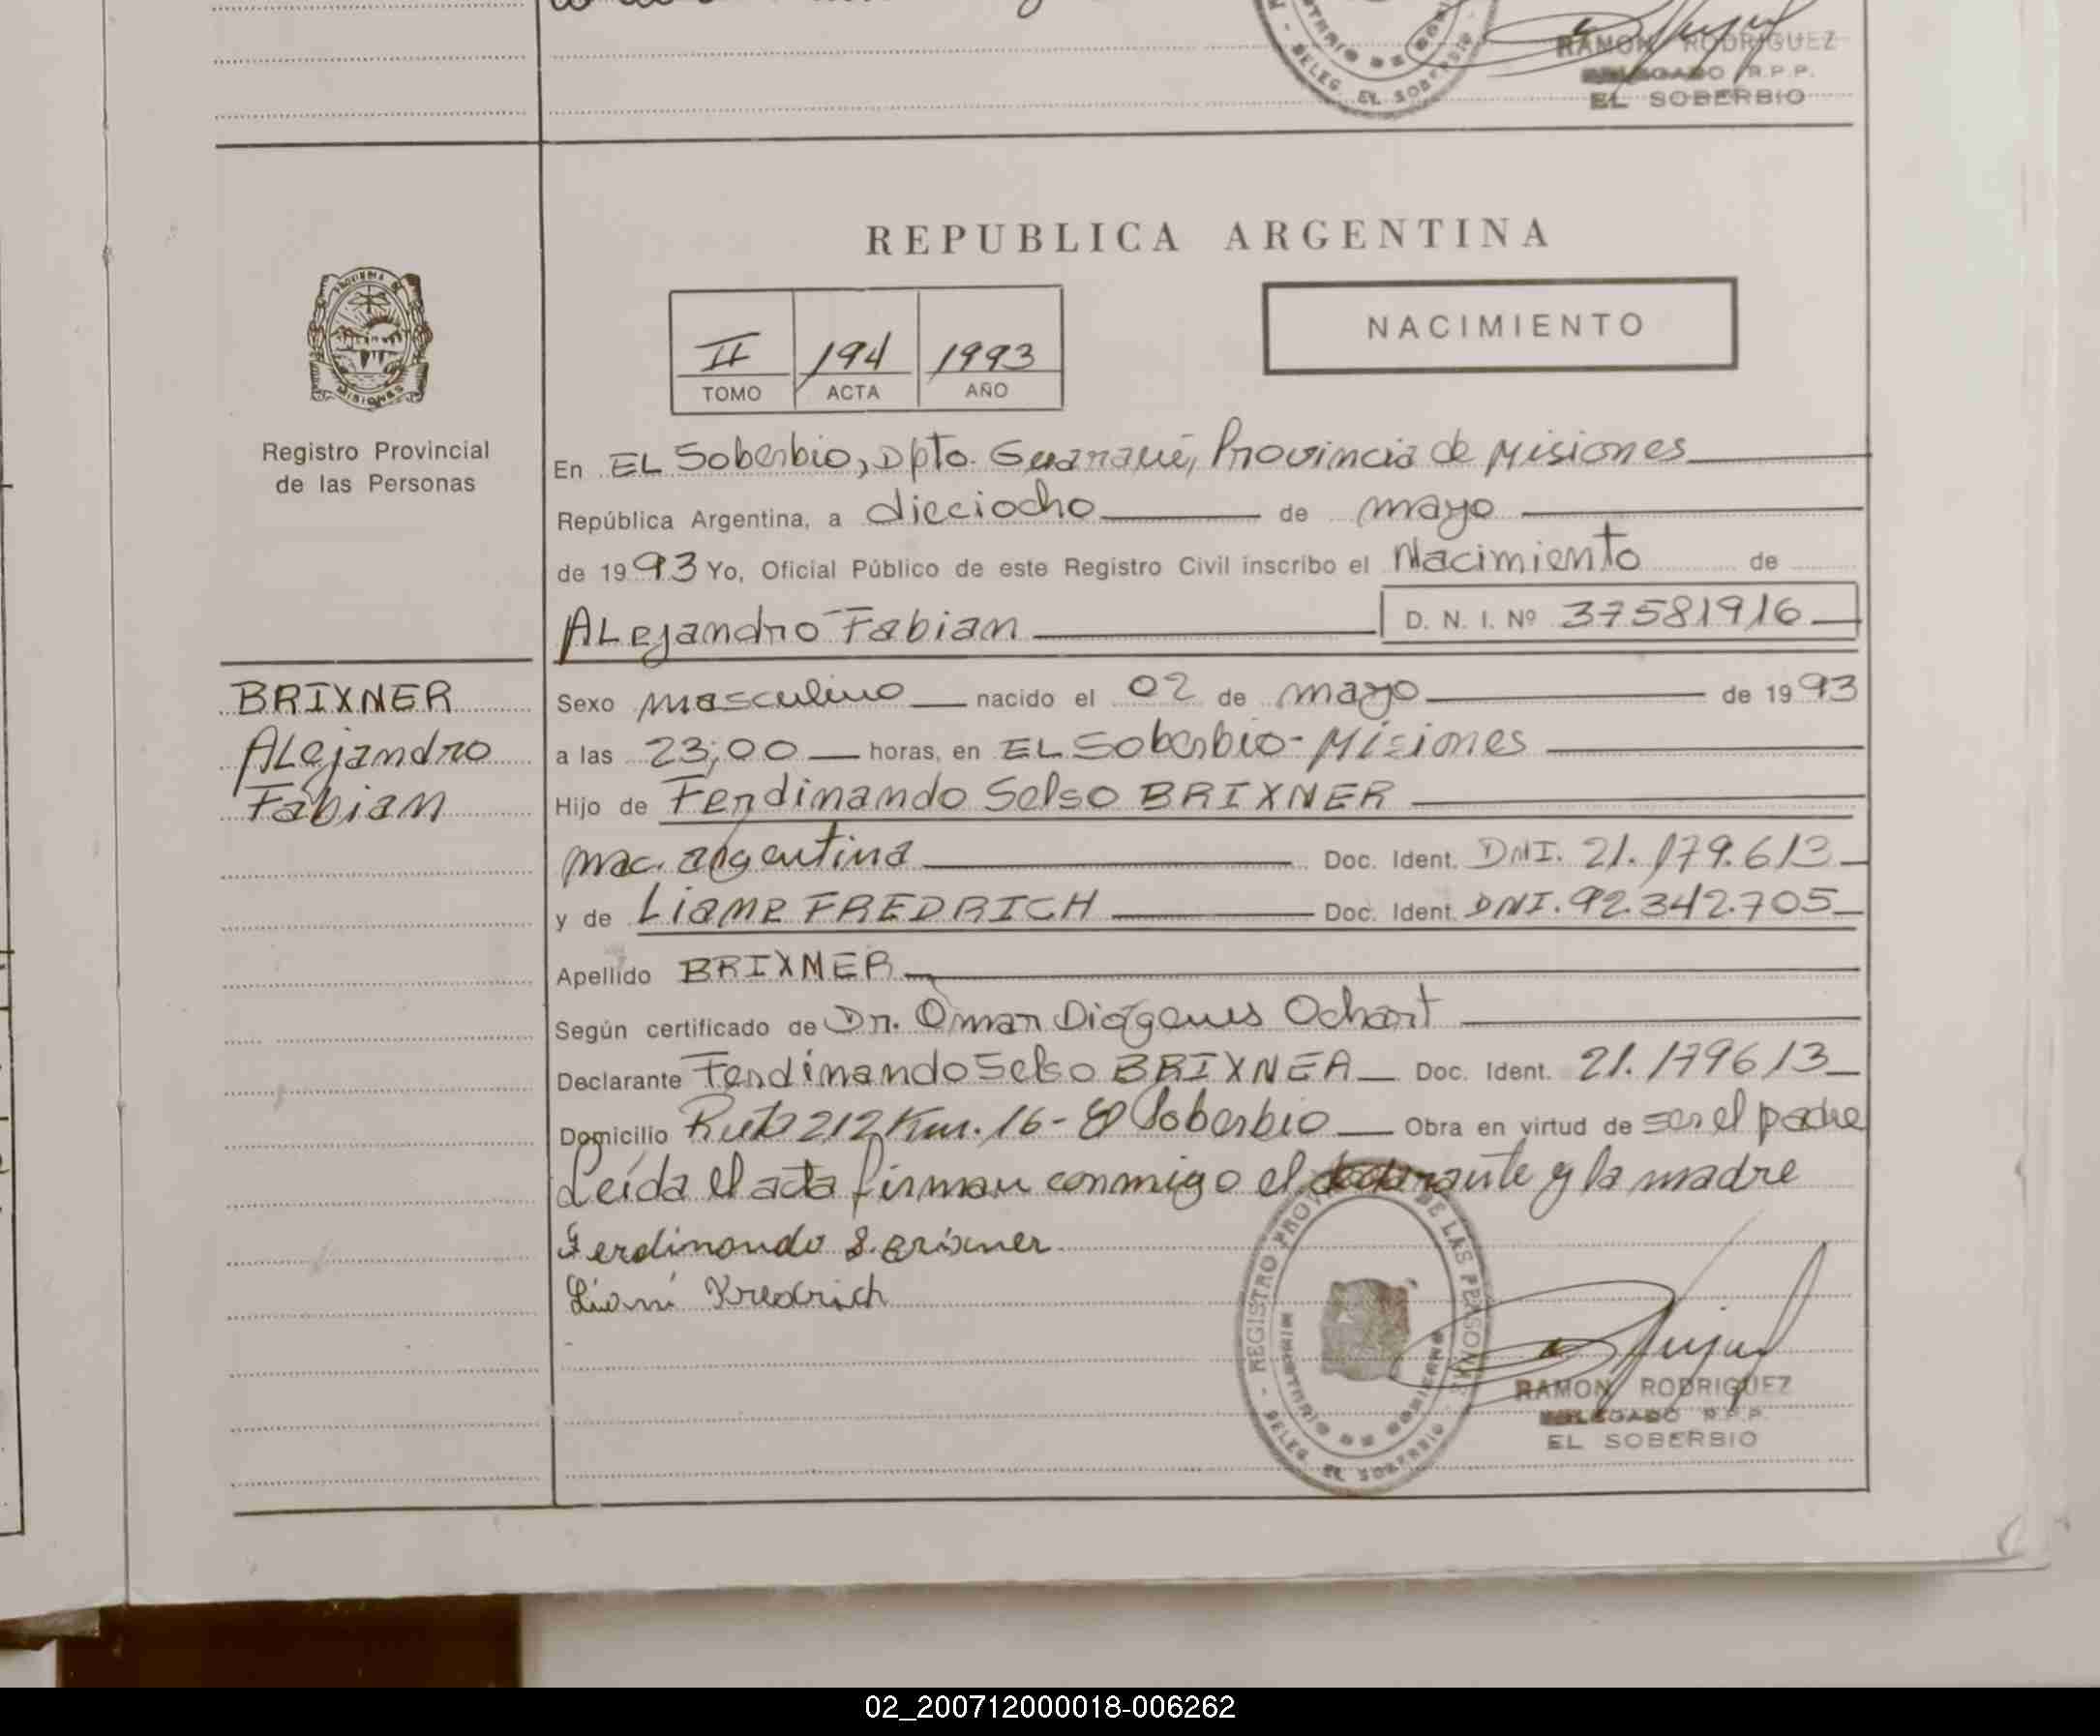 RAMON RODRIGUEZ
DELEGADO R.P.P.
EL SOBERBIO
DELEG. EL SOBERBIO
REPUBLICA ARGENTINA
II 194 1993
TOMO ACTA AÑO
NACIMIENTO
PROVINCIA DE MISIONES
Registro Provincial
de las Personas
En EL Soberbio, Dpto. Guaraní, Provincia de Misiones
República Argentina, a dieciocho de mayo
de 1993 Yo, Oficial Público de este Registro Civil inscribo el Nacimiento de
ALejandro Fabian D. N. I. Nº 37581916
BRIXNER
ALejandro
Fabian
Sexo masculino nacido el 02 de mayo de 1993
a las 23;00 horas, en EL Soberbio - Misiones
Hijo de Ferdinando Selso BRIXNER
nac. argentina Doc. Ident. DNI. 21.179.613
y de Liane FREDRICH Doc. Ident. DNI. 92.342.705
Apellido BRIXNER
Según certificado de Dr. Omar Diógenes Ochart
Declarante Ferdinando Selso BRIXNER Doc. Ident. 21.179613
Domicilio Ruta 212 Km. 16 - El Soberbio Obra en virtud de ser el padre
Leída el acta firman conmigo el declarante y la madre
Ferdinando S. Brixner
Liani Fredrich
REGISTRO PROV DE LAS PERSONAS
DELEG. EL SOBERBIO
RAMON RODRIGUEZ
DELEGADO R.P.P.
EL SOBERBIO
02_200712000018-006262